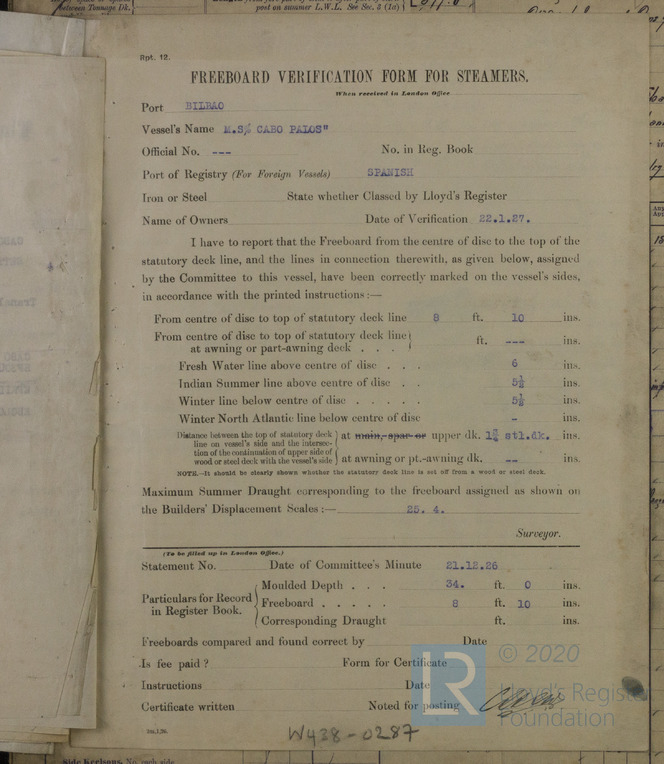 between Tonnage Dk.
post on summer L.W.L. See Sec. 3 (1a)
Rpt. 12.
FREEBOARD VERIFICATION FORM FOR STEAMERS.
When received in London Office
Port BILBAO
Vessel's Name M.S. CABO PALOS"
Official No. --- No. in Reg. Book
Port of Registry (For Foreign Vessels) SPANISH
Iron or Steel State whether Classed by Lloyd's Register
Name of Owners Date of Verification 22.1.27.
I have to report that the Freeboard from the centre of disc to the top of the
statutory deck line, and the lines in connection therewith, as given below, assigned
by the Committee to this vessel, have been correctly marked on the vessel's sides,
in accordance with the printed instructions :—
From centre of disc to top of statutory deck line 8 ft. 10 ins.
From centre of disc to top of statutory deck line
at awning or part-awning deck . . . ft. --- ins.
Fresh Water line above centre of disc . . . 6 ins.
Indian Summer line above centre of disc . . 5½ ins.
Winter line below centre of disc . . . . . 5½ ins.
Winter North Atlantic line below centre of disc - ins.
Distance between the top of statutory deck
line on vessel's side and the intersec-
tion of the continuation of upper side of
wood or steel deck with the vessel's side
at main, spar or upper dk. stl.dk. ins.
at awning or pt.-awning dk. -- ins.
NOTE.—It should be clearly shown whether the statutory deck line is set off from a wood or steel deck.
Maximum Summer Draught corresponding to the freeboard assigned as shown on
the Builders' Displacement Scales :— 25. 4.
Surveyor.
(To be filled up in London Office.)
Statement No. Date of Committee's Minute 21.12.26
Particulars for Record
in Register Book.
Moulded Depth . . . 34. ft. 0 ins.
Freeboard . . . . . 8 ft. 10 ins.
Corresponding Draught ft. ins.
Freeboards compared and found correct by Date
Is fee paid ? Form for Certificate
Instructions Date
Certificate written Noted for posting
© 2020
LR
Lloyd's Register
Foundation
W438-0287
Side Keelsons, No. each side